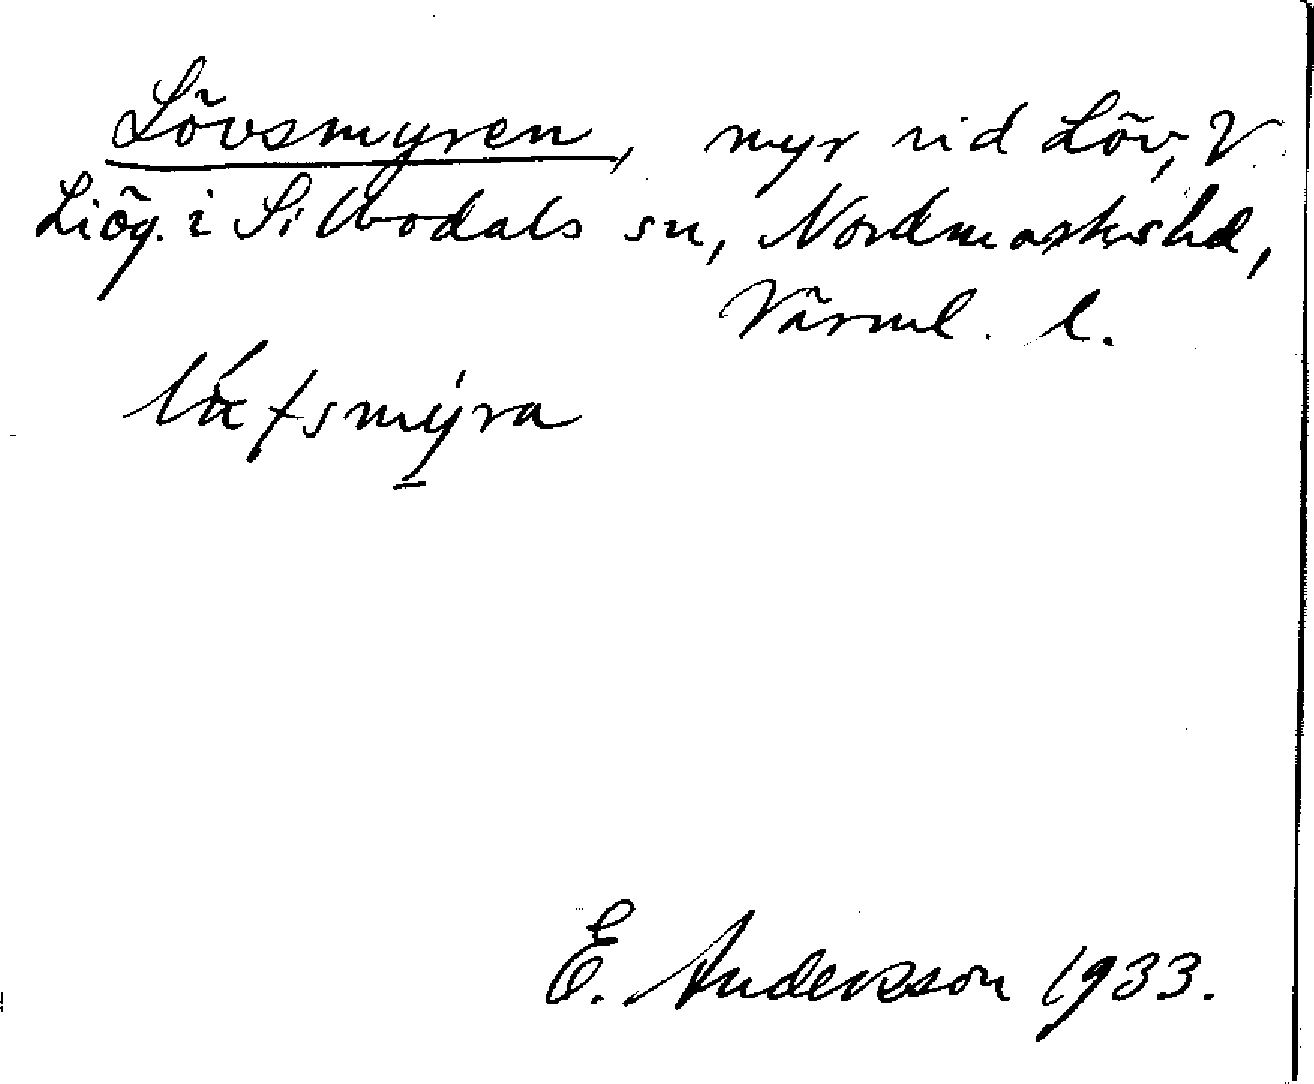 Lövsmyren, myr vid Löv, V
Liög. i Silbodals sn, Nordmarkshd,
Värml. l.
E. Andersson 1933.